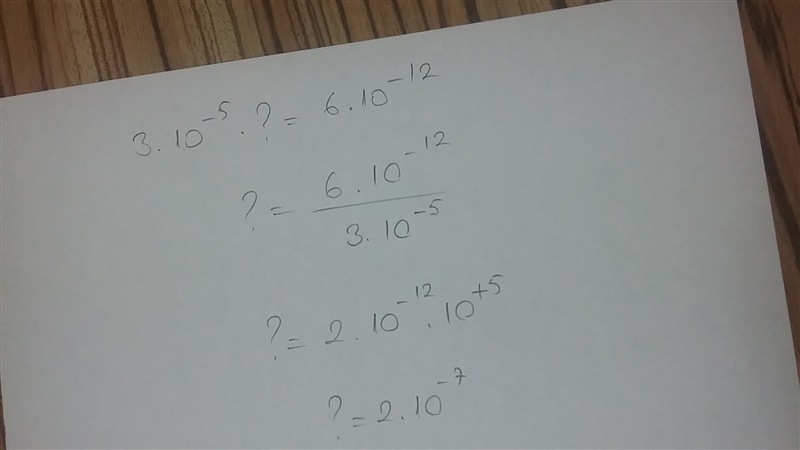 3.10⁻⁵.? = 6.10⁻¹²
? = 6.10⁻¹² / 3.10⁻⁵
? = 2.10⁻¹².10⁺⁵
? = 2.10⁻⁷